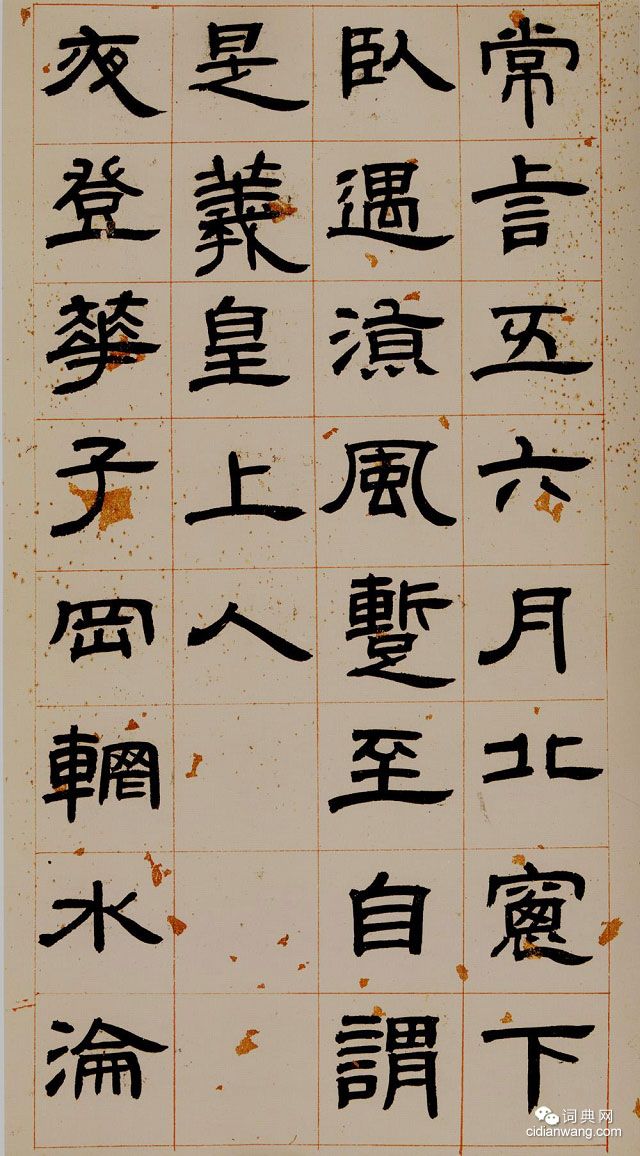 常言五六月北窻下
臥遇涼風暫至自謂
是羲皇上人
夜登華子岡輞水淪
词典网
cidianwang.com